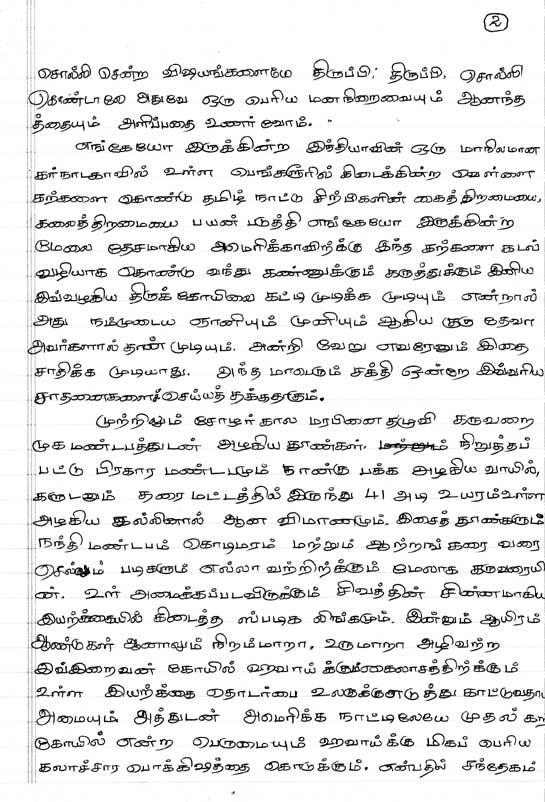 2
சொல்லி சென்ற விஷயங்களையே திருப்பி, திருப்பி, சொல்லி
கொண்டாலே அதுவே ஒரு பெரிய மனநிறைவையும் ஆனந்த
த்தையும் அளிப்பதை உணர்வோம்.
எங்கேயோ இருக்கின்ற இந்தியாவின் ஒரு மாநிலமான
கர்நாடகாவில் உள்ள பெங்களூரில் கிடைக்கின்ற வெள்ளை
கற்களை கொண்டு தமிழ் நாட்டு சிற்பிகளின் கைத்திறமையை,
கலைத்திறமையை பயன் படுத்தி எங்கேயோ இருக்கின்ற
மேலை தேசமாகிய அமெரிக்காவிற்க்கு இந்த கற்களை கடல்
வழியாக கொண்டு வந்து கண்ணுக்கும் கருத்துக்கும் இனிய
இவ்வழகிய திருக்கோயிலை கட்டி முடிக்க முடியும் என்றால்
அது நம்முடைய ஞானியும் முனியும் ஆகிய குரு தேவா
அவர்களால் தான் முடியும். அன்றி வேறு எவரேனும் இதை
சாதிக்க முடியாது. அந்த மாபெரும் சக்தி ஒன்றே இவ்வரிய
சாதனைகளைச் செய்யத் தக்கதாகும்.
முற்றிலும் சோழர் கால மரபினை தழுவி கருவறை
முக மண்டபத்துடன் அழகிய தூண்கள். நிறுத்தப்
பட்டு பிரகார மண்டபமும் நான்கு பக்க அழகிய வாயில்,
கருடனும் தரை மட்டத்தில் இருந்து 41 அடி உயரம் உள்ள
அழகிய கல்லினால் ஆன விமானமும். இசைத் தூண்களும்
நந்தி மண்டபம் கொடிமரம் மற்றும் ஆற்றங் கரை வரை
செல்லும் படிகளும் எல்லா வற்றிற்க்கும் மேலாக கருவரையி
ன். உள் அமைக்கப்படவிருக்கும் சிவத்தின் சின்னமாகிய
இயற்க்கையில் கிடைத்த ஸ்படிக லிங்கமும். இன்னும் ஆயிரம்
ஆண்டுகள் ஆனாலும் நிறம்மாறா, உருமாறா அழிவற்ற
இவ்இறைவன் கோயில் ஹவாய் க்கும் கைலாசத்திற்க்கும்
உள்ள இயற்க்கை தொடர்பை உலகுக்கு எடுத்து காட்டுவதாய்
அமையும் அத்துடன் அமெரிக்க நாட்டிலேயே முதல் கற்
கோயில் என்ற பெருமையும் ஹவாய்க்கு மிகப் பெரிய
கலாச்சார பொக்கிஷத்தை கொடுக்கும். என்பதில் சந்தேகம்